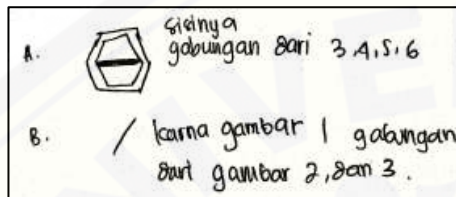 sisinya
A. gabungan dari 3,4,5,6
B. / karna gambar 1 gabungan
dari gambar 2, dan 3.